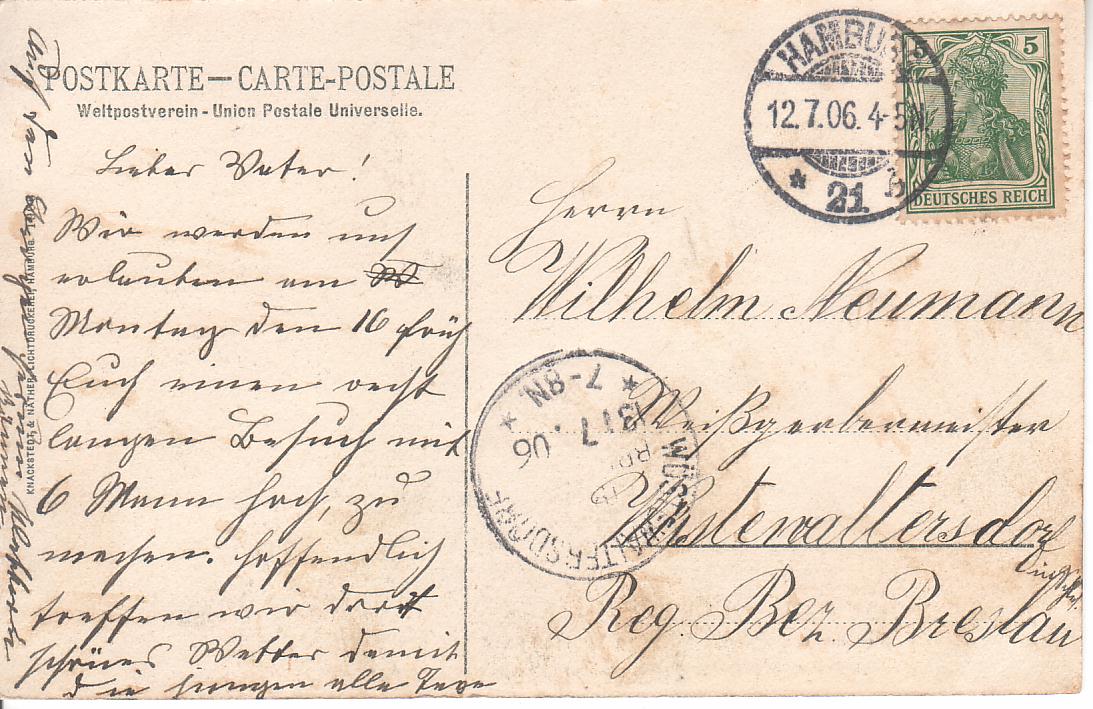 POSTKARTE — CARTE-POSTALE
Weltpostverein - Union Postale Universelle.
HAMBURG
12.7.06. 4-5N.
* 21. b.
5
DEUTSCHES REICH
Lieber Vater!
Wir werden uns
erlauben am
Montag den 16 früh
Euch einen recht
langen Besuch mit
6 Mann hoch, zu
machen. Hoffendlich
treffen wir dort
schönes Wetter damit
die Jungen alle Tage
Auf
Herrn
Wilhelm Neumann
Weißgerbermeister
Wüstewaltersdorf
Reg. Bez. Breslau
WÜSTEWALTERSDORF
13/7.06
* 7-8N *
KNACKSTEDT & NÄTHER, LICHTDRUCKEREI, HAMBURG.